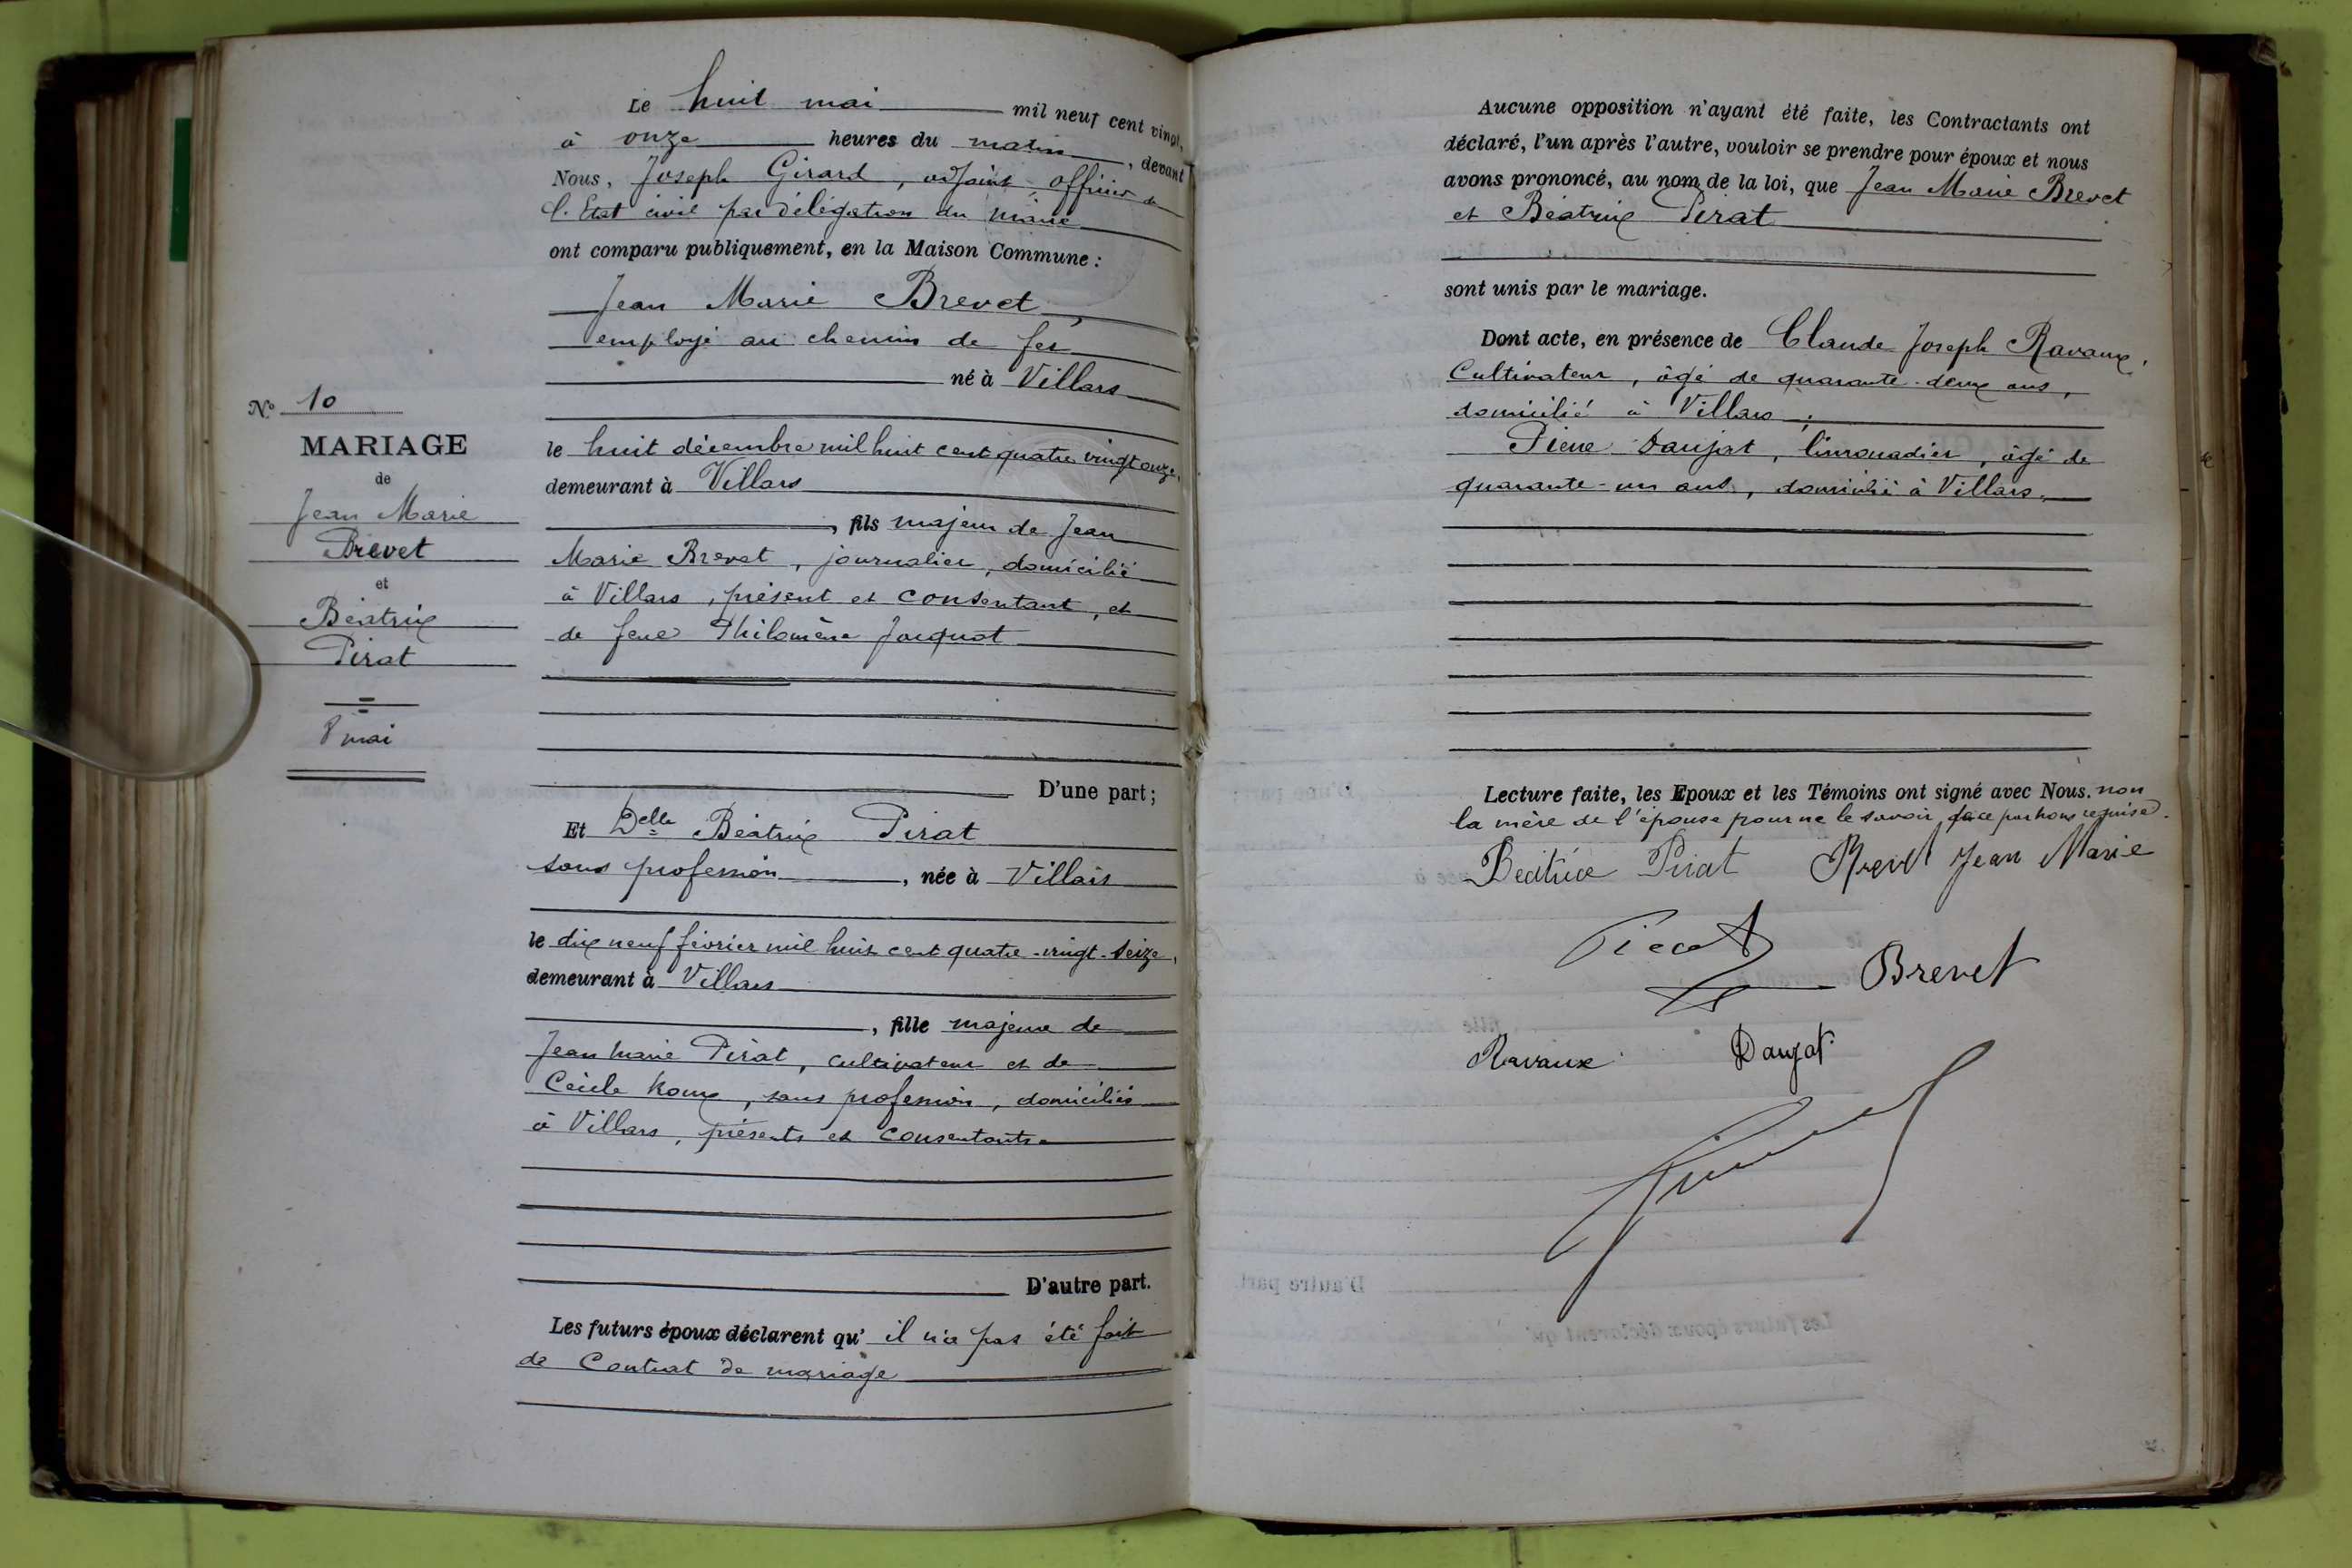 Le huit mai mil neuf cent vingt,
à onze heures du matin, devant
Nous, Joseph Girard, adjoint, officier de
l'Etat civil par délégation du maire
ont comparu publiquement, en la Maison Commune :
Jean Marie Brevet,
employé au chemin de fer
né à Villars
le huit décembre mil huit cent quatre vingt onze,
demeurant à Villars
, fils majeur de Jean
Marie Brevet, journalier, domicilié
à Villars, présent et consentant, et
de feue Philomène Jacquot
D'une part ;
Et Delle Béatrix Pirat
sans profession, née à Villars
le dix neuf février mil huit cent quatre-vingt-seize,
demeurant à Villars
, fille majeure de
Jean Marie Pirat, cultivateur et de
Cécile, sans profession, domiciliés
à Villars, présents et consentants
D'autre part.
Les futurs époux déclarent qu' il n'a pas été fait
de Contrat de mariage
N° 10
MARIAGE
de
Jean Marie
Brevet
et
Béatrix
Pirat
8 mai
Aucune opposition n'ayant été faite, les Contractants ont
déclaré, l'un après l'autre, vouloir se prendre pour époux et nous
avons prononcé, au nom de la loi, que Jean Marie Brevet
et Béatrix Pirat
sont unis par le mariage.
Dont acte, en présence de Claude Joseph Ravaux,
Cultivateur, âgé de quarante-deux ans,
domicilié à Villars ;
Pierre Daujat, limonadier, âgé de
quarante-un ans, domicilié à Villars.
Lecture faite, les Epoux et les Témoins ont signé avec Nous. non
la mère de l'épouse pour ne le savoir, de ce par nous requise.
Beatrice Pirat Brevet Jean Marie
Brevet
Ravaux Daujat